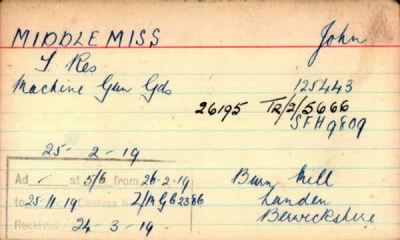 MIDDLEMISS John
F. Res
Machine Gun Gds 125443
26195 T2/2/5666
SFH9809
25- 2-19
Ad - at 5/6 from 26-2-19
to 25-11-19 2/MGB2386
Burn Mill
Received 24-3-19.
Berwickshire